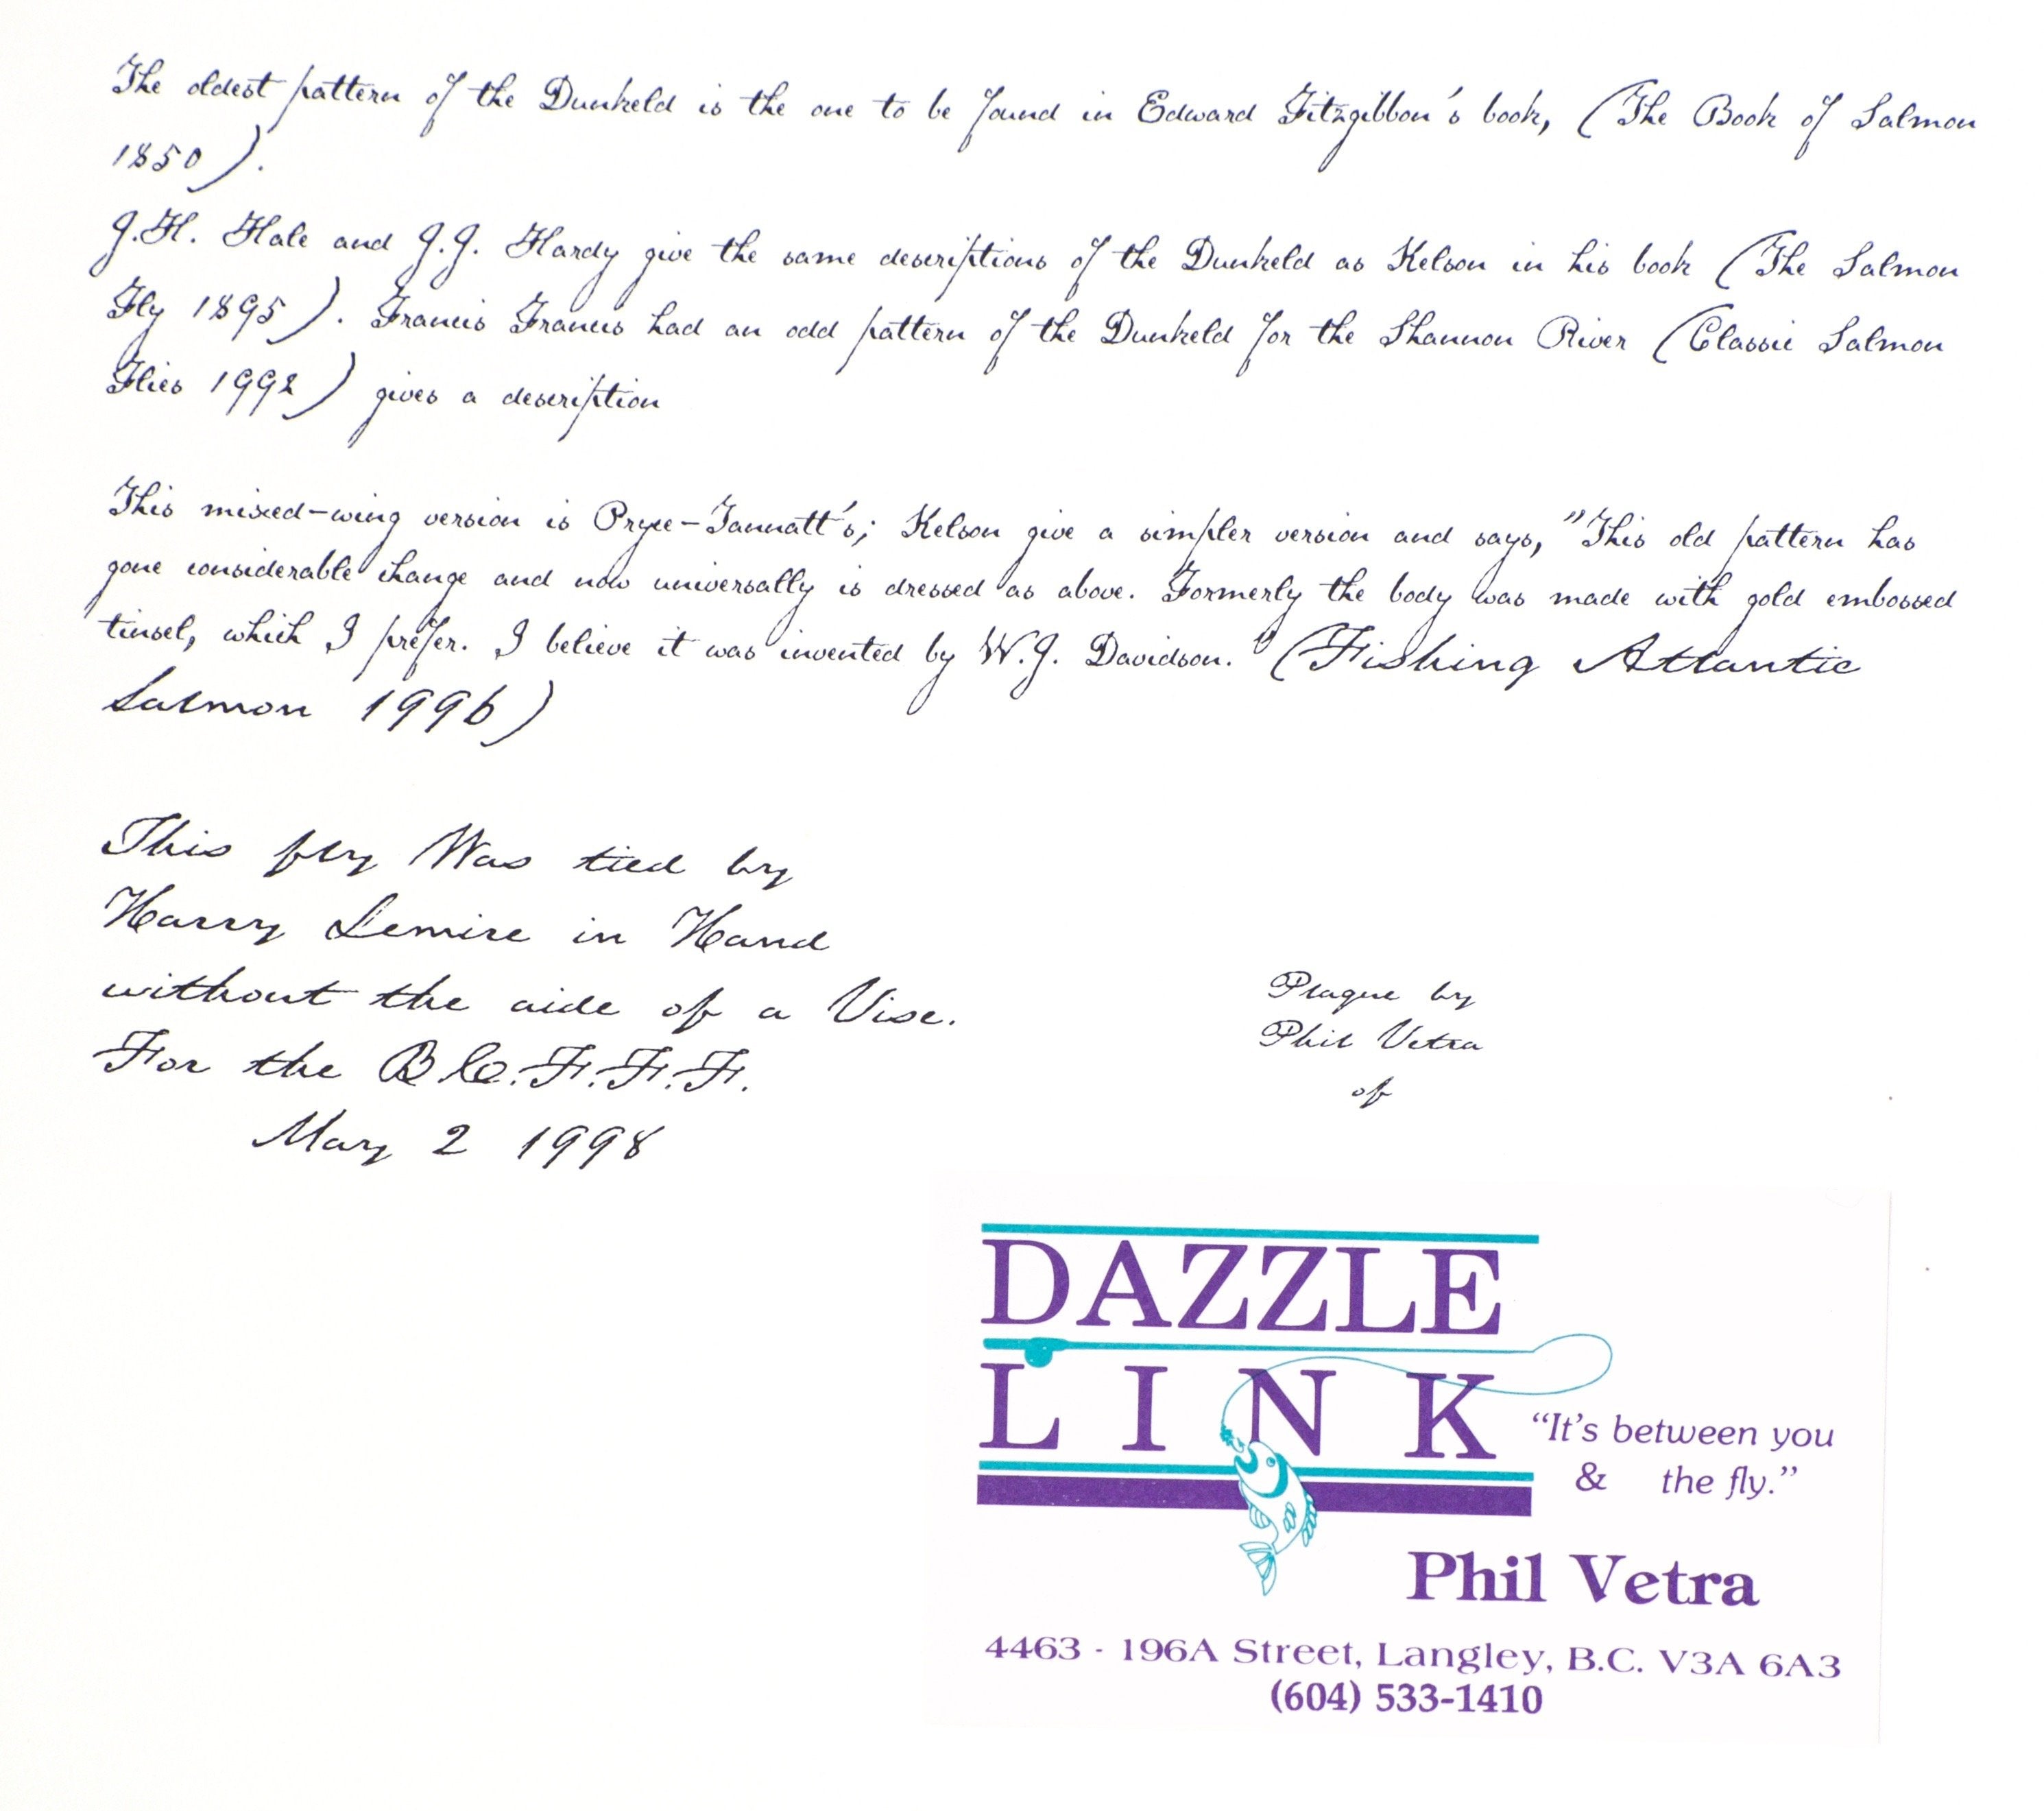 The oldest pattern of the Dunkeld is the one to be found in Edward Fitzgibbon's book, (The Book of Salmon
1850).
J.H. Hale and J.J. Hardy give the same descriptions of the Dunkeld as Kelson in his book (The Salmon
Fly 1895). Francis Francis had an odd pattern of the Dunkeld for the Shannon River (Classic Salmon
Flies 1992) gives a description
This mixed-wing version is Pryce-Tannatt's; Kelson give a simpler version and says, "This old pattern has
gone considerable change and now universally is dressed as above. Formerly the body was made with gold embossed
tinsel, which I prefer. I believe it was invented by W.J. Davidson." (Fishing Atlantic
Salmon 1996)
This fly Was tied by
Harry Lemire in Hand
without the aide of a Vise.
For the B.C.F.F.F.
May 2 1998
Plaque by
Phil Vetra
of
DAZZLE
LINK
"It's between you
& the fly."
Phil Vetra
4463 - 196A Street, Langley, B.C. V3A 6A3
(604) 533-1410